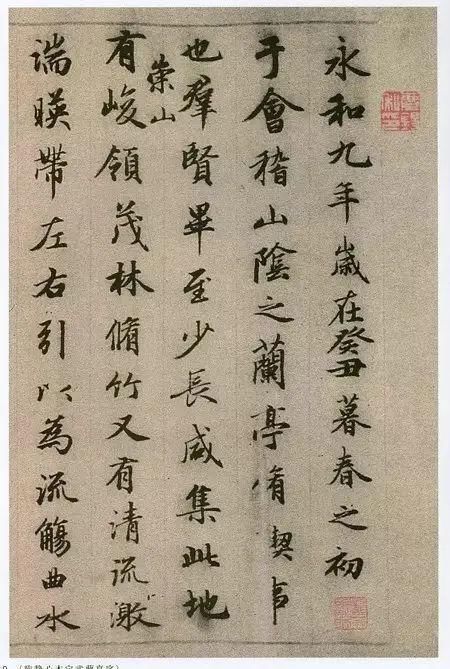 永和九年歲在癸丑暮春之初
于會稽山陰之蘭亭脩禊事
也羣賢畢至少長咸集此地
有崇山峻領茂林脩竹又有清流激
湍暎帶左右引以為流觴曲水